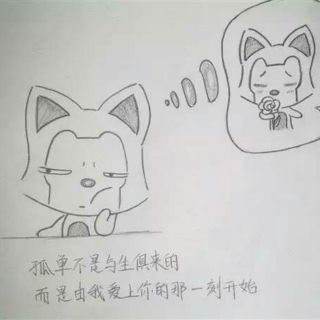 孤单不是与生俱来的
而是由我爱上你的那一刻开始